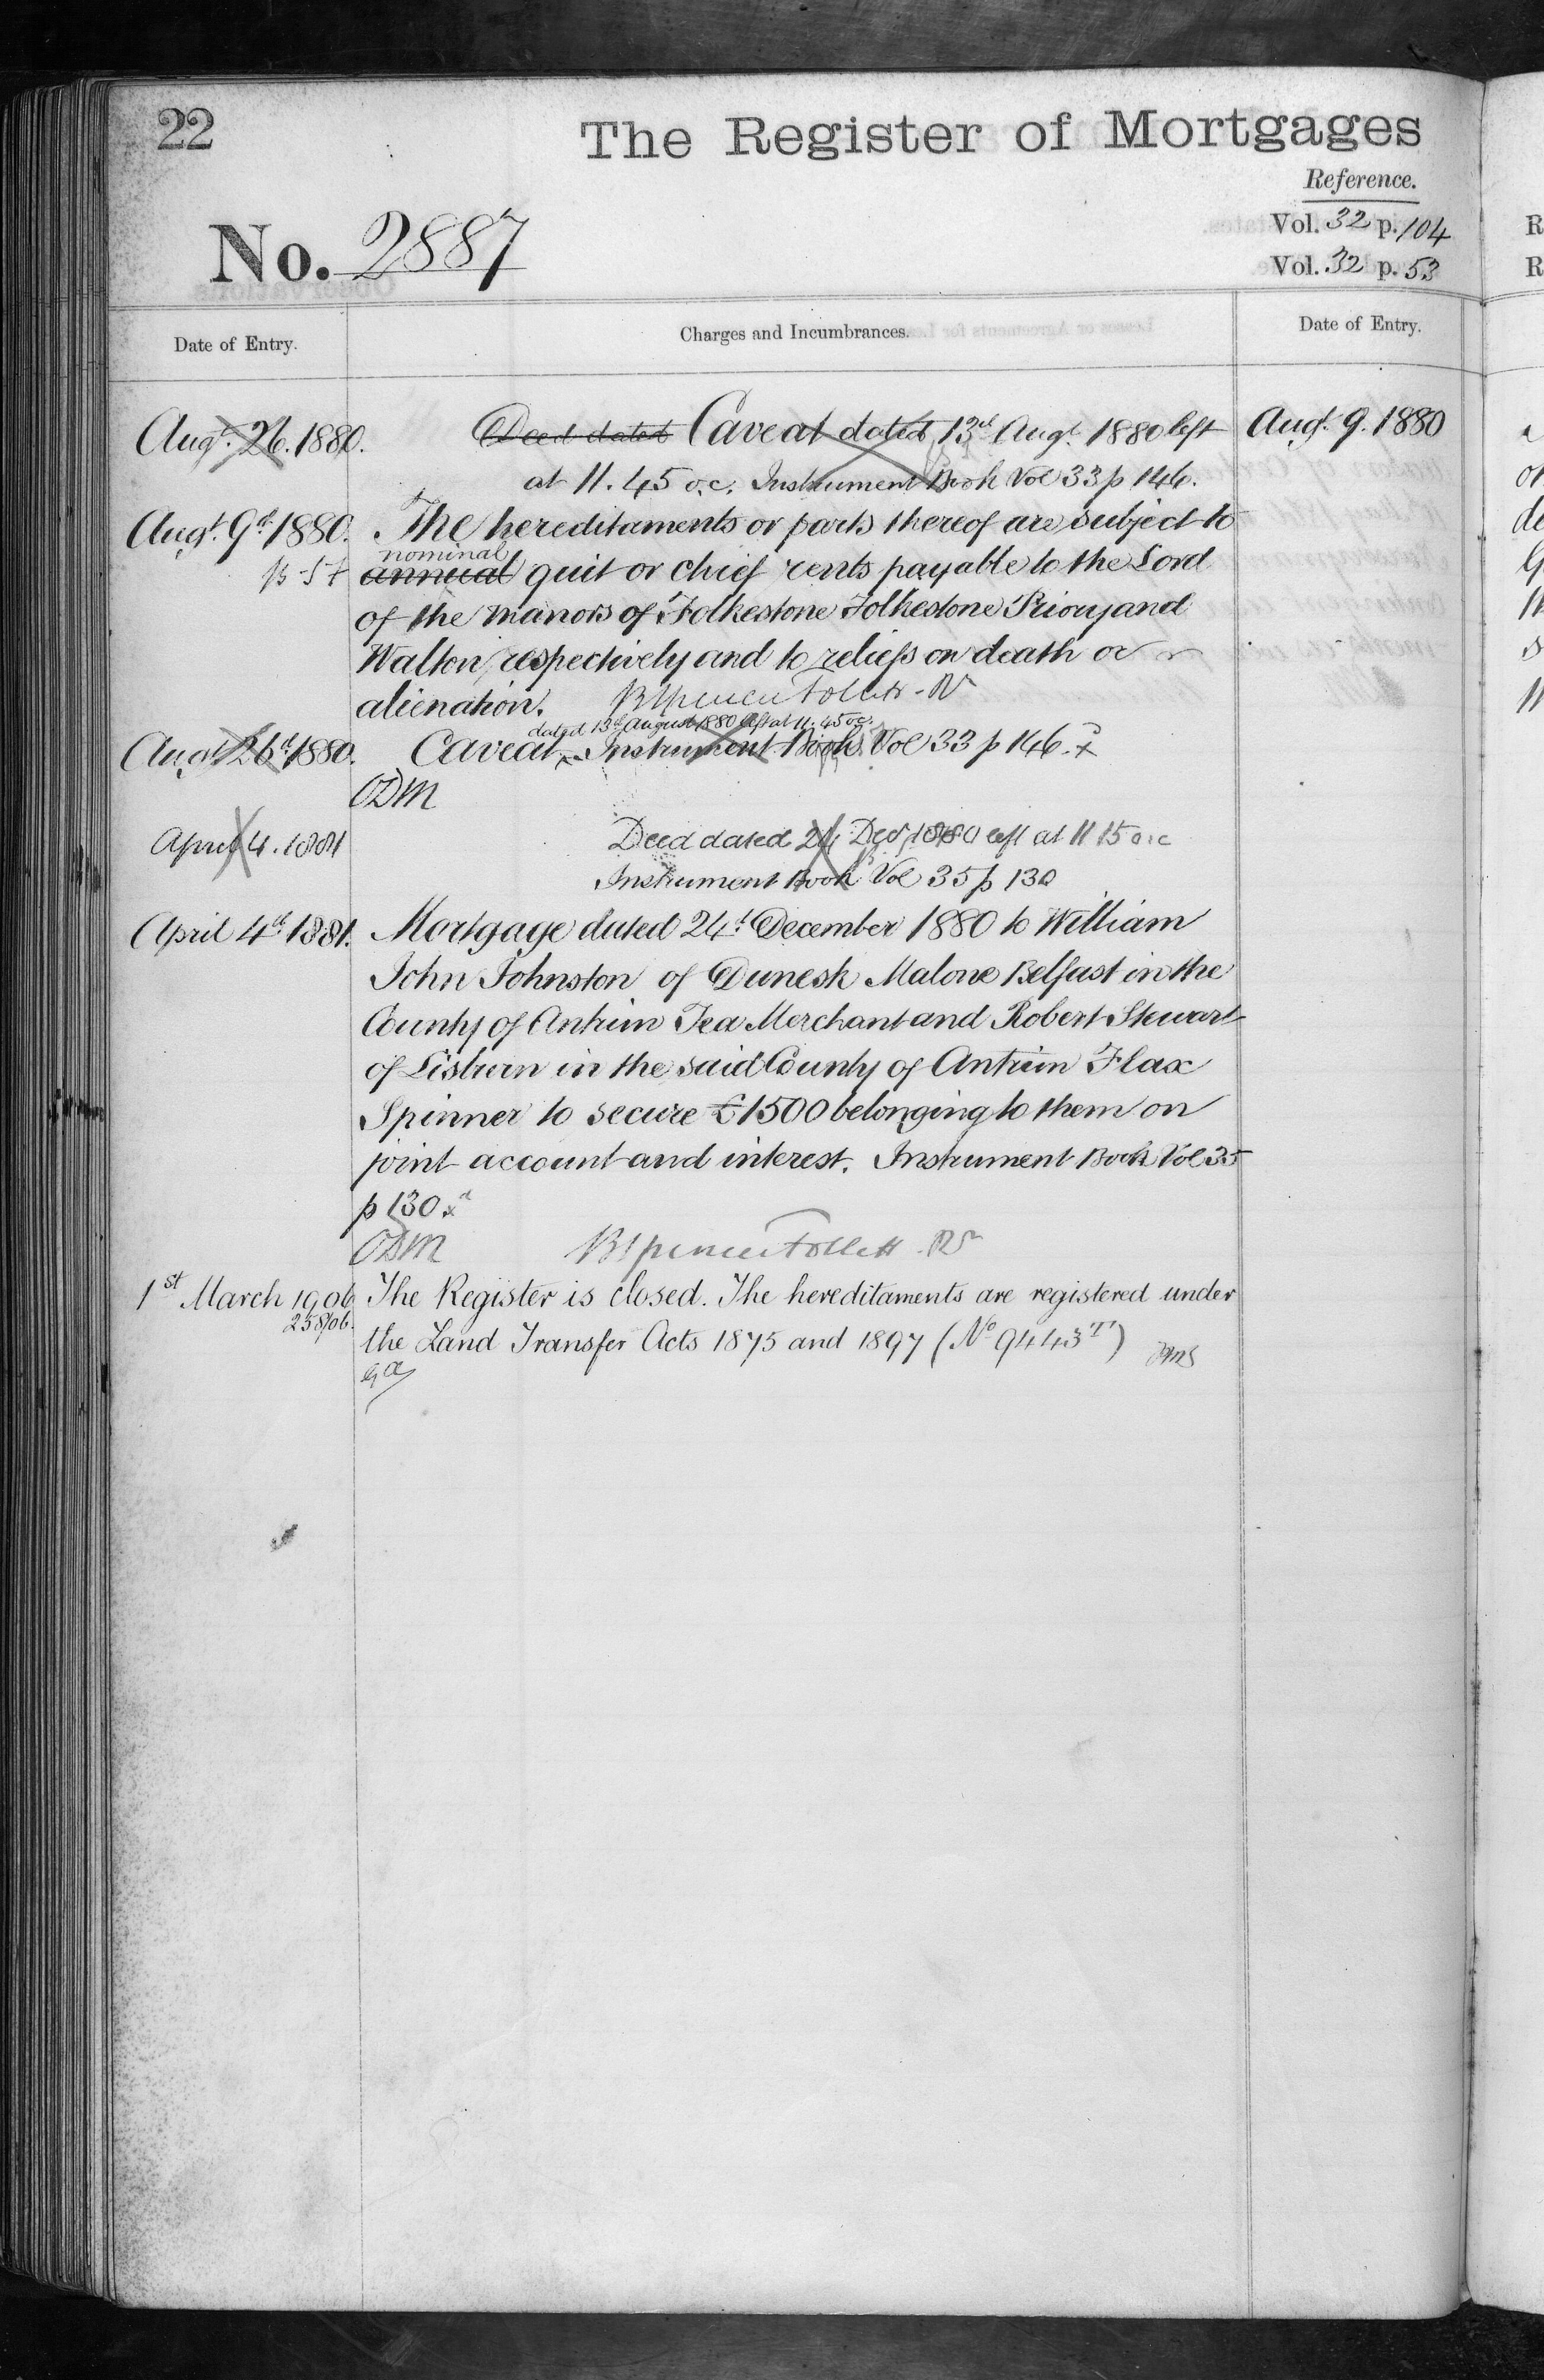 22
The Register of Mortgages
Reference.
No. 2887
Vol. 32 p. 104
Vol. 32 p. 53
Date of Entry.
Charges and Incumbrances.
Date of Entry.
Augt. 26. 1880.
Deed dated Caveat dated 13th Augt. 1880 left
Augt. 9. 1880
at 11.45 o.c. Instrument Book Vol 33 p 146.
Augt. 9th 1880. The hereditaments or parts thereof are subject to
nominal
p 57 annual quit or chief rents payable to the Lord
of the manors of Folkestone Folkestone Priory and
Walton respectively and to reliefs on death or
alienation. B Spencer Follett - Rr
dated 13th August 1880 left at 11.45 oc.
Augt 26th 1880. Caveat Instrument Book Vol 33 p 146. x
ODM
April 4. 1881
Deed dated 24 Decr 1880 left at 11 15 o.c
Instrument Book Vol 35 p 130
April 4th 1881. Mortgage dated 24th December 1880 to William
John Johnston of Dunesk Malone Belfast in the
County of Antrim Tea Merchant and Robert Stewart
of Lisburn in the said County of Antrim Flax
Spinner to secure £1500 belonging to them on
joint account and interest. Instrument Book Vol 35
p 130 x
ODM B Spencer Follett - Rr
1st March 1906 The Register is closed. The hereditaments are registered under
258/06.
the Land Transfer Acts 1875 and 1897 (No 9443 "T")